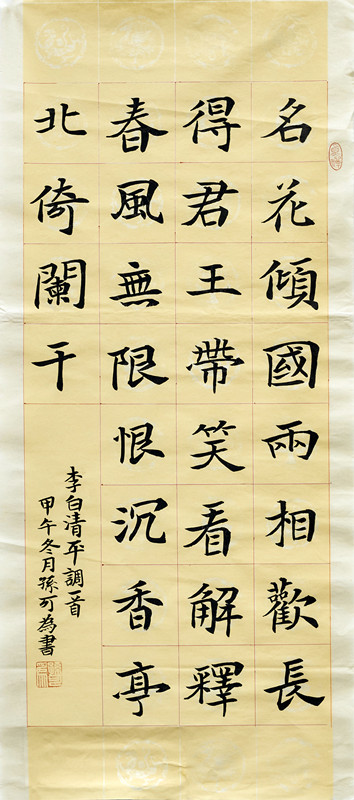 名花傾國兩相歡長
得君王帶笑看解釋
春風無限恨沉香亭
北倚闌干
李白清平調一首
甲午冬月孫可為書